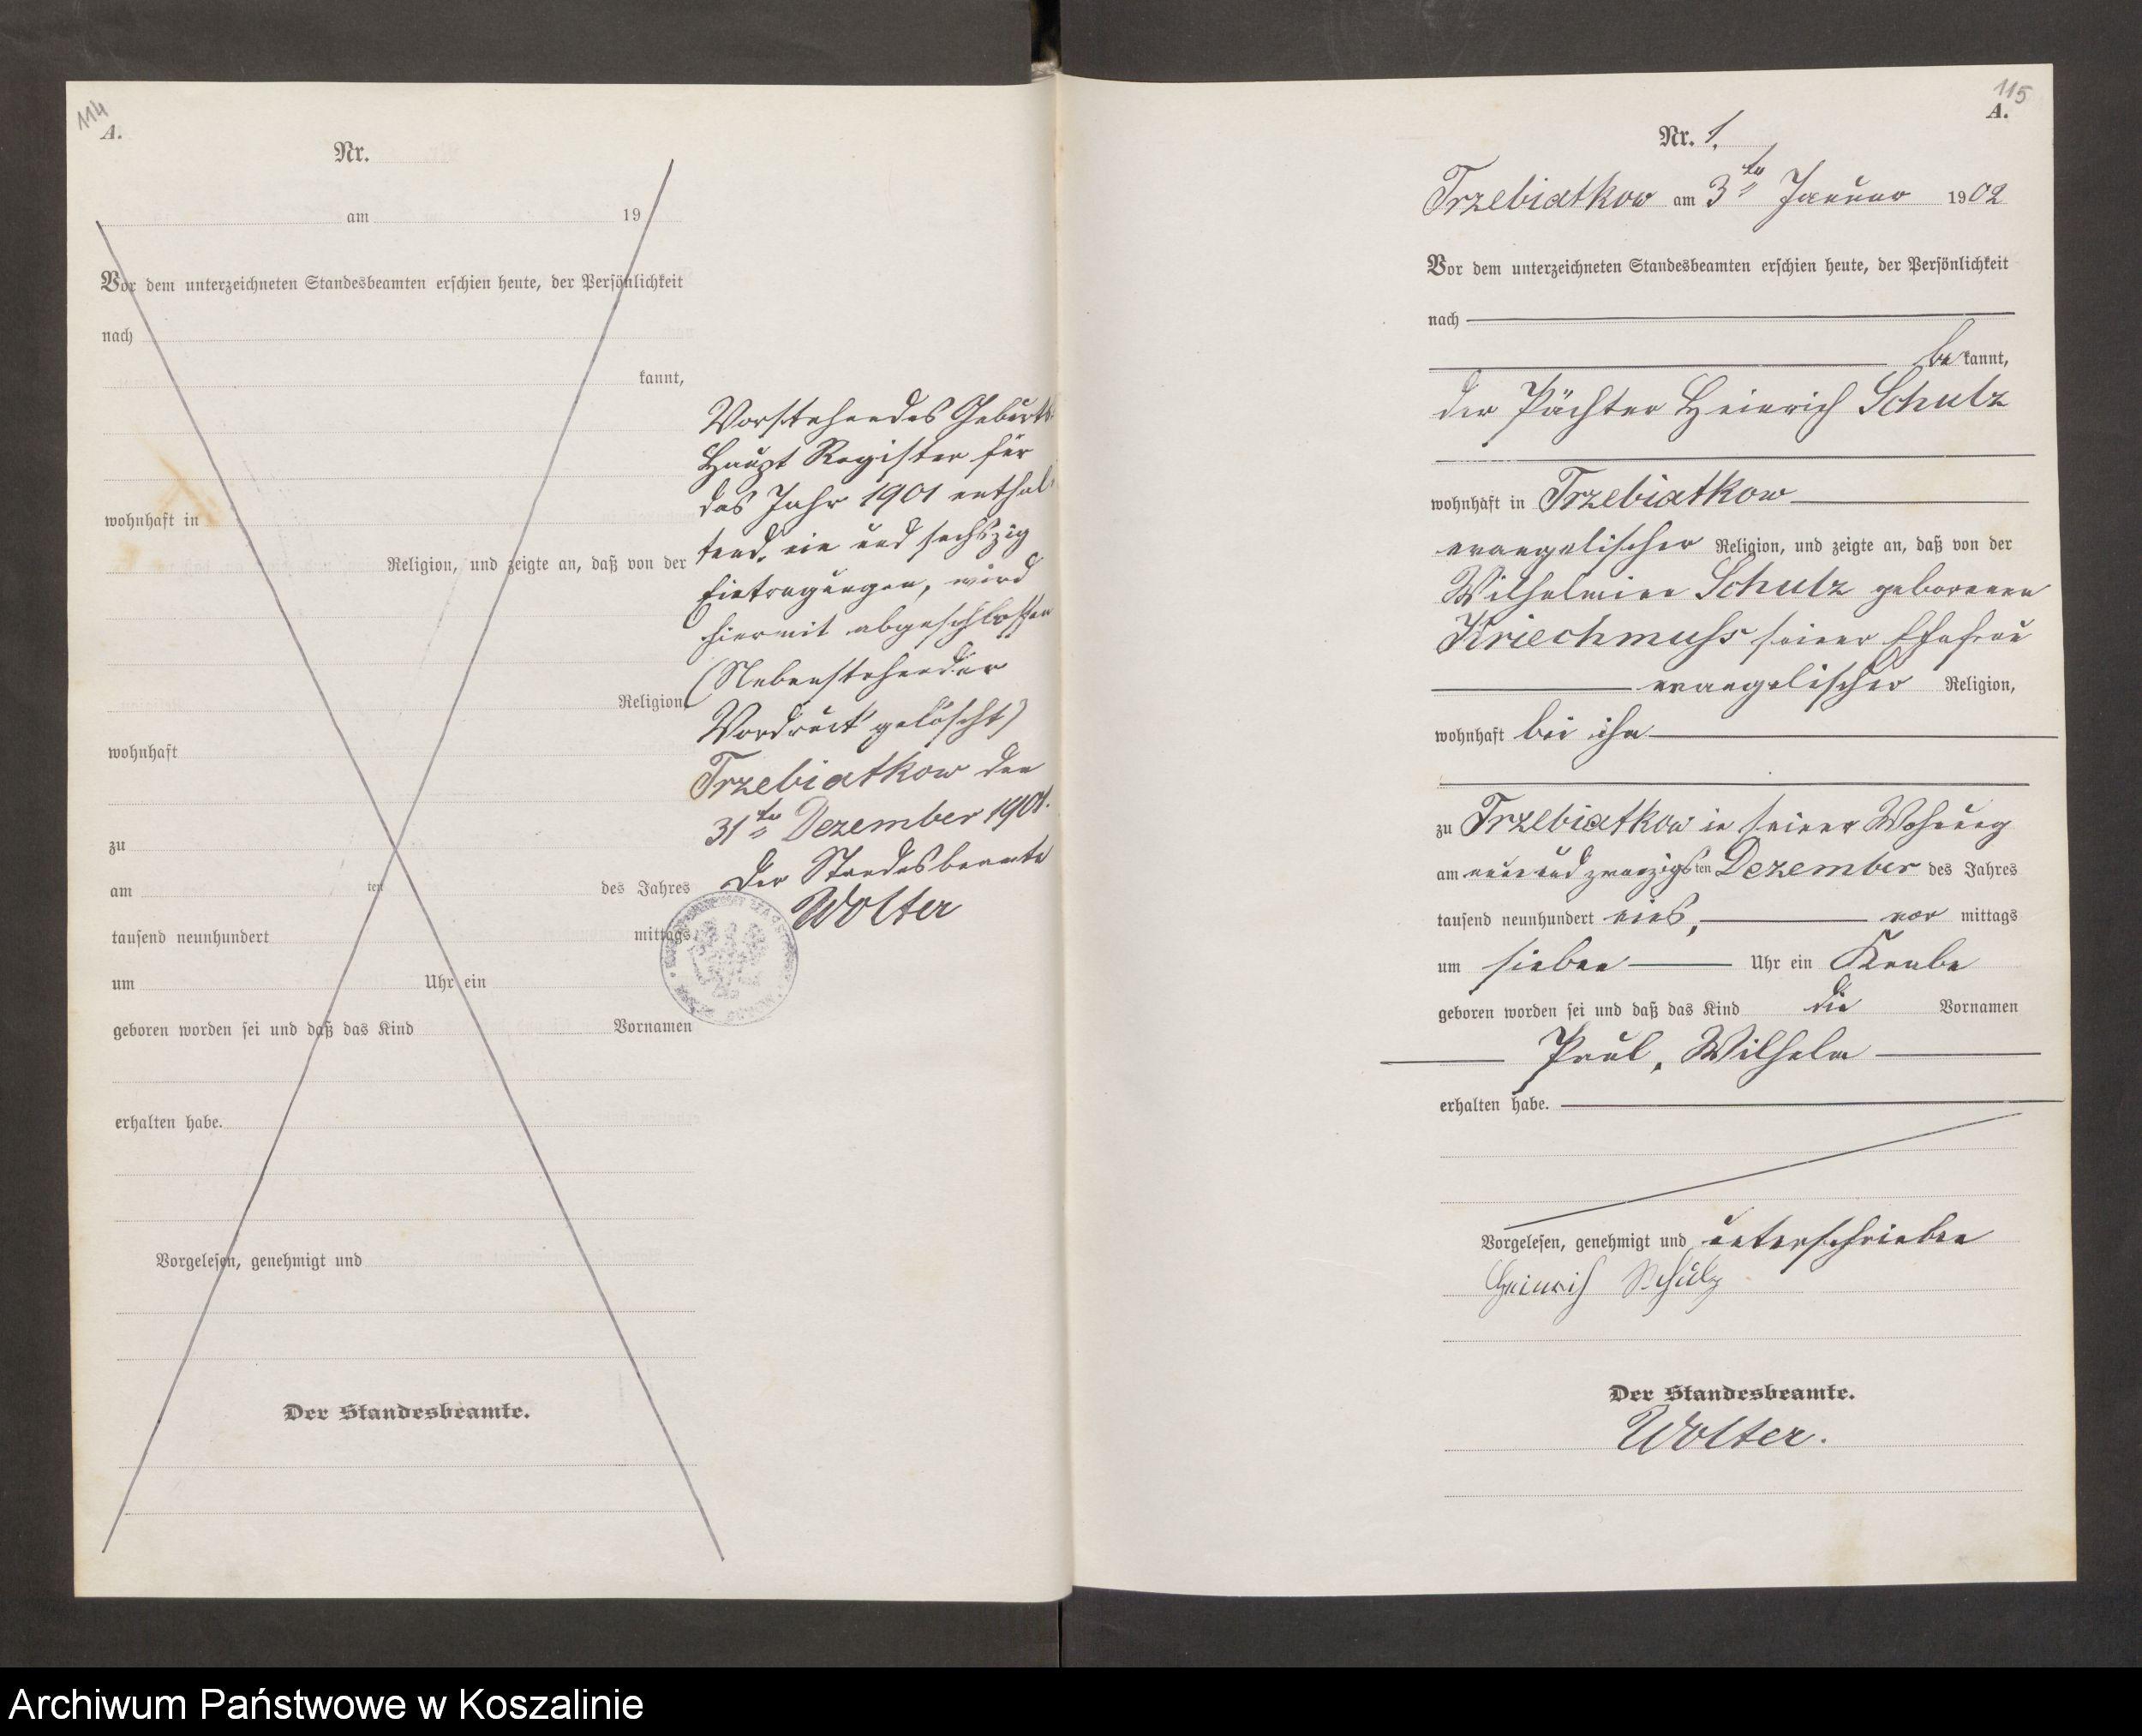 114
A.
Nr.
am 19
Vor dem unterzeichneten Standesbeamten erschien heute, der Persönlichkeit
nach
kannt,
wohnhaft in
Religion, und zeigte an, daß von der
Religion,
wohnhaft
zu
am ten des Jahres
tausend neunhundert mittags
um Uhr ein
geboren worden sei und daß das Kind Vornamen
erhalten habe.
Vorgelesen, genehmigt und
Der Standesbeamte.
Vorstehendes Geburts-
Haupt Register für
das Jahr 1901 enthal-
tend, ein und sechszig
Eintragungen, wird
hiermit abgeschlossen
(Nebenstehender
Vordruck gelöscht)
Trzebiatkow den
31ten Dezember 1901.
Der Standesbeamte
Wolter
115
A.
Nr. 1.
Trzebiatkow am 3ten Januar 1902
Vor dem unterzeichneten Standesbeamten erschien heute, der Persönlichkeit
nach
bekannt,
der Pächter Heinrich Schulz
wohnhaft in Trzebiatkow
evangelischer Religion, und zeigte an, daß von der
Wilhelmine Schulz geborenen
Kriechmuss seiner Ehefrau
evangelischer Religion,
wohnhaft bei ihm
zu Trzebiatkow in seiner Wohnung
am neun und zwanzigsten Dezember des Jahres
tausend neunhundert eins, vor mittags
um sieben Uhr ein Knabe
geboren worden sei und daß das Kind die Vornamen
Paul, Wilhelm
erhalten habe.
Vorgelesen, genehmigt und unterschrieben
Heinrich Schulz
Der Standesbeamte.
Wolter.
Archiwum Państwowe w Koszalinie